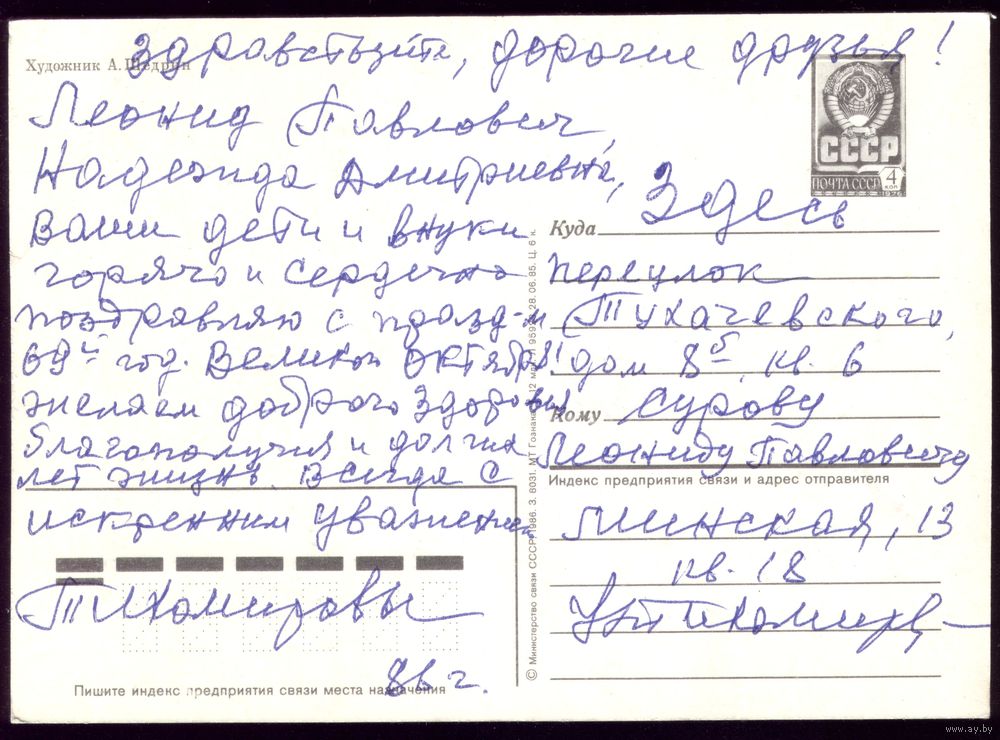 Художник А. Щедрин
Здравствуйте, дорогие друзья!
Леонид Павлович
Надежда Дмитриевна,
Ваши дети и внуки
горячо и сердечно
поздравляю с празд-м
69й год. Великой Октября!
желаем доброго здоровья
благополучия и долгих
лет жизни. Всегда с
искренним уважением
Тихомировы
86 г.
Пишите индекс предприятия связи места назначения
© Министерство связи СССР. 1986. З. 6031. МТ Гознака. 28.06.85. Ц. 6 к.
СССР
ПОЧТА СССР 4 КОП
1976
Здесь
Куда
переулок
Тухачевского,
дом 8б, кв. 6
Кому Сурову
Леониду Павловичу
Индекс предприятия связи и адрес отправителя
Минская, 13
кв. 18
Тихомиров
www.ay.by